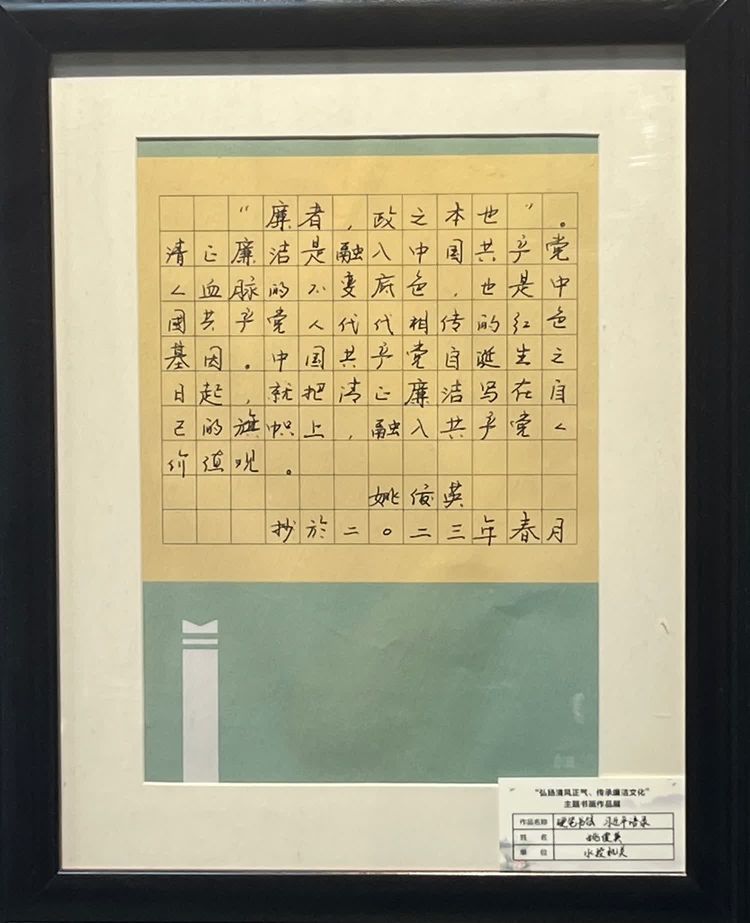 “廉者，政之本也”。
清正廉洁是融入中国共产党
人血脉的不变底色，也是中
国共产党人代代相传的红色
基因。中国共产党自诞生之
日起，就把清正廉洁写在自
己的旗帜上，融入共产党人
价值观。
姚俊英
抄於二〇二三年春月
“弘扬清风正气、传承廉洁文化”
主题书画作品展
作品名称 硬笔书法 习近平语录
姓 名 姚俊英
单 位 机关